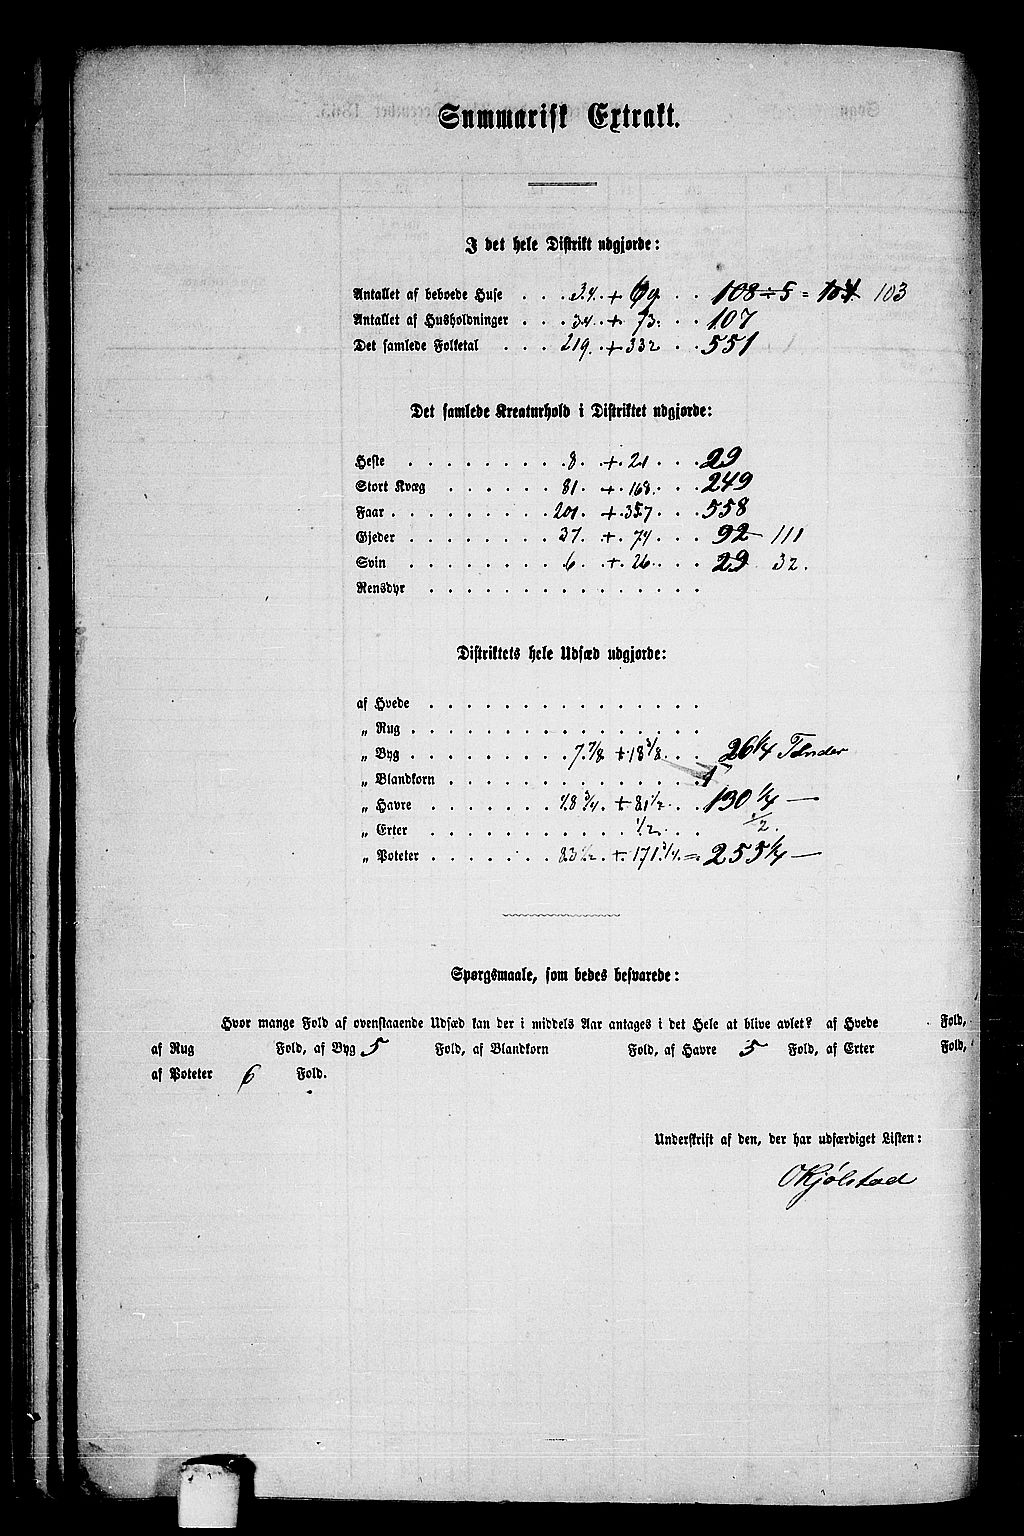 Summarisk Extrakt.
I det hele Distrikt udgjorde:
Antallet af beboede Huse . . . 34. + 69 . . 108 ÷ 5 = 104 103
Antallet af Husholdninger . . . 34. + 73. . . 107
Det samlede Folketal . . . 219. + 332 . . 551
Det samlede Kreaturhold i Distriktet udgjorde:
Heste . . . . . . . . . 8. + 21 . . . 29
Stort Kvæg . . . . . . 81. + 168. . . 249
Faar . . . . . . . . . 201. + 357 . . . 558
Gjeder . . . . . . . . 37. + 74 . . . 92 111
Svin . . . . . . . . . 6. + 26. . . . 29 32.
Rensdyr . . . . . . . . . . . . . . .
Distriktets hele Udsæd udgjorde:
af Hvede . . . . . . . . . . . . . . .
„ Rug . . . . . . . . . . . . . . . .
„ Byg . . . . . . . 7 7/8 + 18 3/8 . . 26 1/4 Tønder
„ Blandkorn . . . . . . . . . . . . . .
„ Havre . . . . . . 48 3/4 + 81 1/2 . . . 130 1/4 —
„ Erter . . . . . . . . 1/2. . . 1/2.
„ Poteter . . . . . . 83 1/2. + 171 3/4. = 255 1/4 —
Spørgsmaale, som bedes besvarede:
Hvor mange Fold af ovenstaaende Udsæd kan der i middels Aar antages i det Hele at blive avlet? af Hvede Fold,
af Rug Fold, af Byg 5 Fold, af Blandkorn Fold, af Havre 5 Fold, af Erter Fold,
af Poteter 6 Fold.
Underskrift af den, der har udfærdiget Listen:
OKjølstad